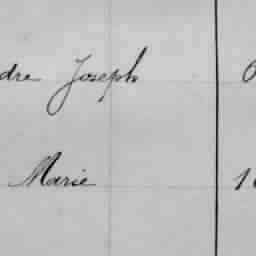 dre Joseph
Marie